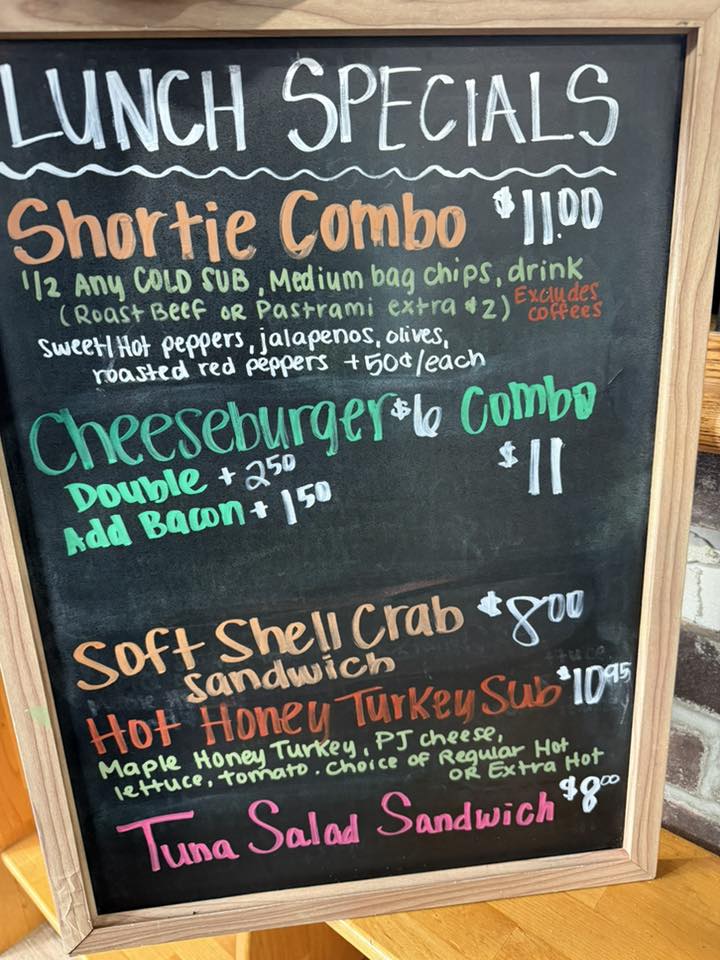 LUNCH SPECIALS
Shortie Combo $11.00
1/2 Any COLD SUB, Medium bag chips, drink
(Roast Beef OR Pastrami extra $2) Excludes coffees
sweet/Hot peppers, jalapenos, olives,
roasted red peppers +50¢/each
Cheeseburger $6 Combo
$11
Double + 2.50
Add Bacon + 1.50
Soft Shell Crab $8.00
sandwich
Hot Honey Turkey Sub $10.95
Maple Honey Turkey, PJ cheese,
lettuce, tomato. Choice of Regular Hot
OR Extra Hot
Tuna Salad Sandwich $8.00